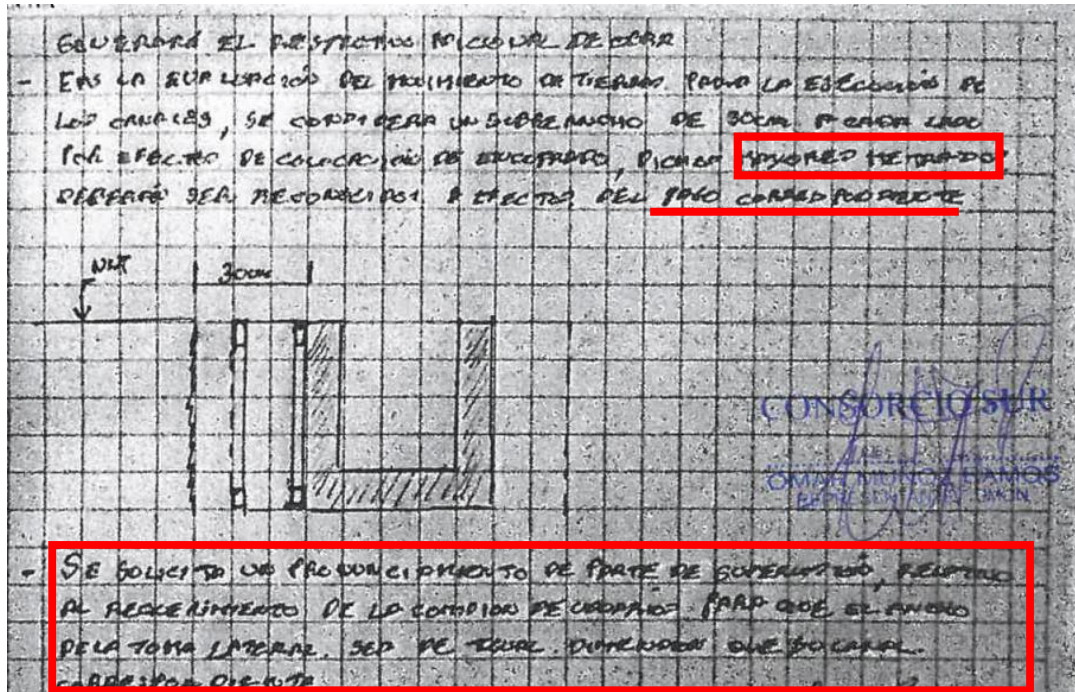 GENERARA EL RESPECTIVO ADICIONAL DE OBRA
- EN LA EVALUACIÓN DEL MOVIMIENTO DE TIERRAS PARA LA EJECUCIÓN DE
LOS CANALES, SE CONSIDERA UN SOBREANCHO DE 30CM A CADA LADO
POR EFECTO DE COLOCACION DE ENCOFRADO, DICHOS MAYORES METRADOS
DEBERÁN SER RECONOCIDOS A EFECTOS DEL PAGO CORRESPONDIENTE
30cm
CONSORCIO SUR
OMAR MUÑOZ RAMOS
REPRESENTANTE COMÚN
- SE SOLICITA UN PRONUNCIAMIENTO DE PARTE DE SUPERVISIÓN, RELATIVO
AL REQUERIMIENTO DE LA COMISION DE USUARIOS PARA QUE EL ANCHO
DE LA TOMA LATERAL SEA DE IGUAL DIMENSION QUE SU CANAL
CORRESPONDIENTE